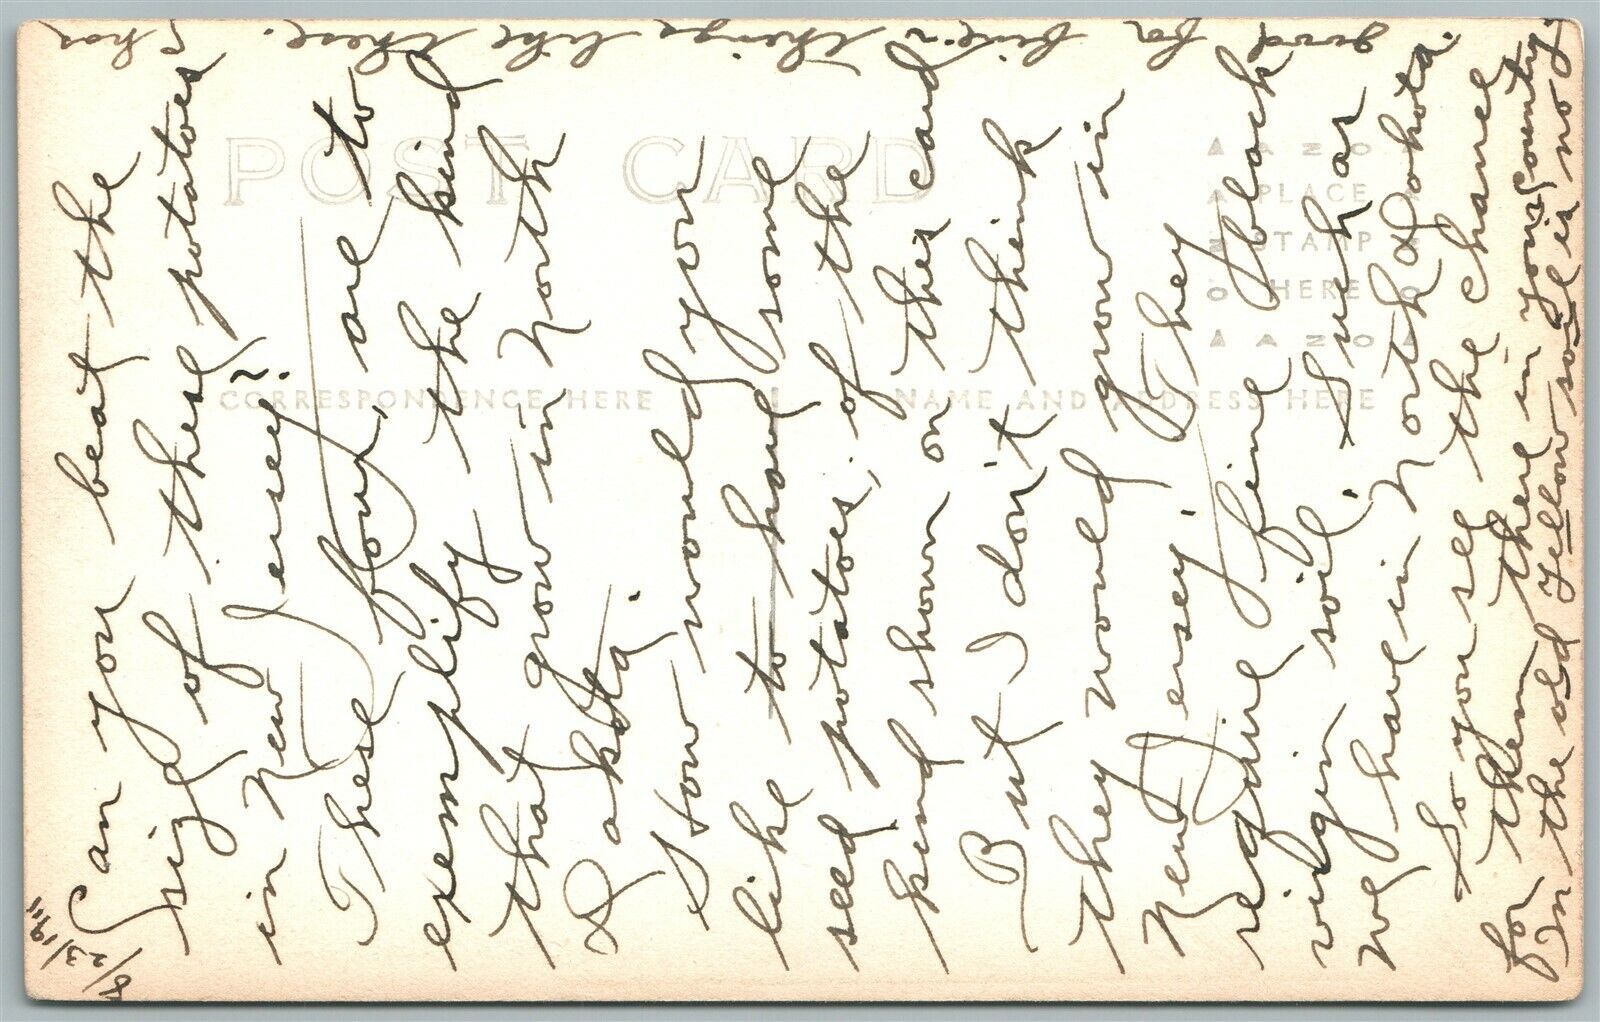 8/23/1911
Can you beat the
size of these potatoes
in New Jersey?
These four, are to
exemplify the kind
that grow in North
Dakota.
How would you
like to have some
seed potatoes, of the
kind shown on this card
But I don't think
they would grow in
New Jersey. They
require fine black
virgin soil, such as
we have in North Dakota.
So you see the chance
for them there in your country
In the old yellow soil is no
good for fine things like these.
POST CARD
CORRESPONDENCE HERE
NAME AND ADDRESS HERE
AZO
PLACE
STAMP
HERE
AZO